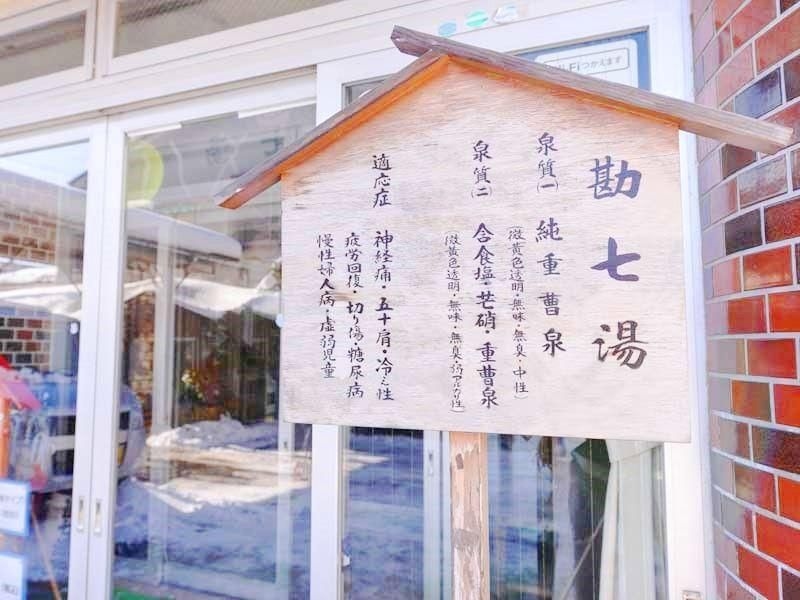 勘七湯
泉質㈠ 純重曹泉
（微黄色透明・無味・無臭・中性）
泉質㈡ 含食塩・芒硝・重曹泉
（微黄色透明・無味・無臭・弱アルカリ性）
適応症 神経痛・五十肩・冷え性
疲労回復・切り傷・糖尿病
慢性婦人病・虚弱児童
Fiつかえます